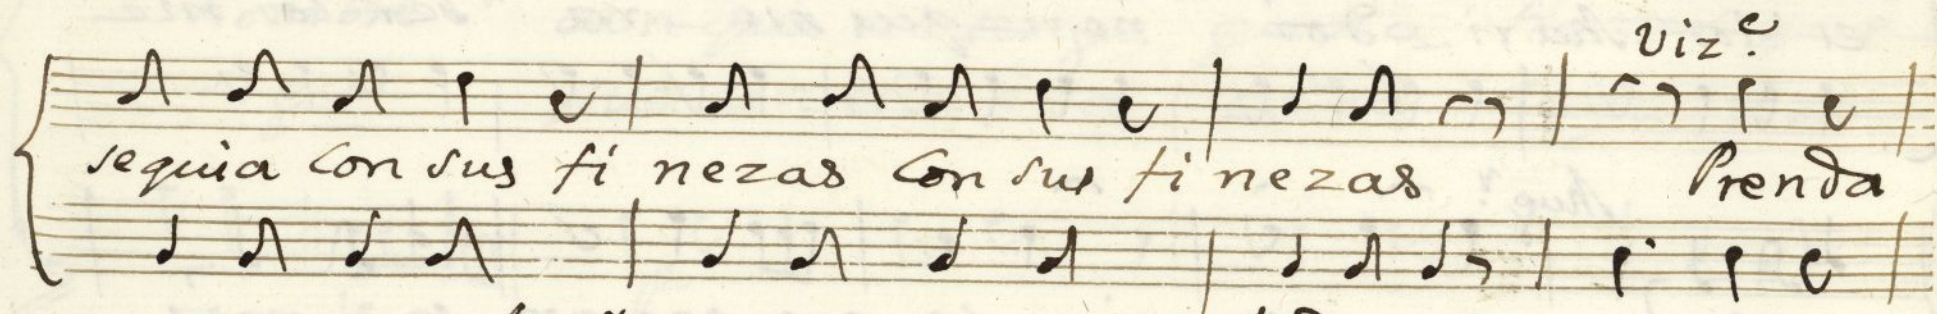 Vizᵉ.
seguia con sus fi nezas con sus fi nezas Prenda